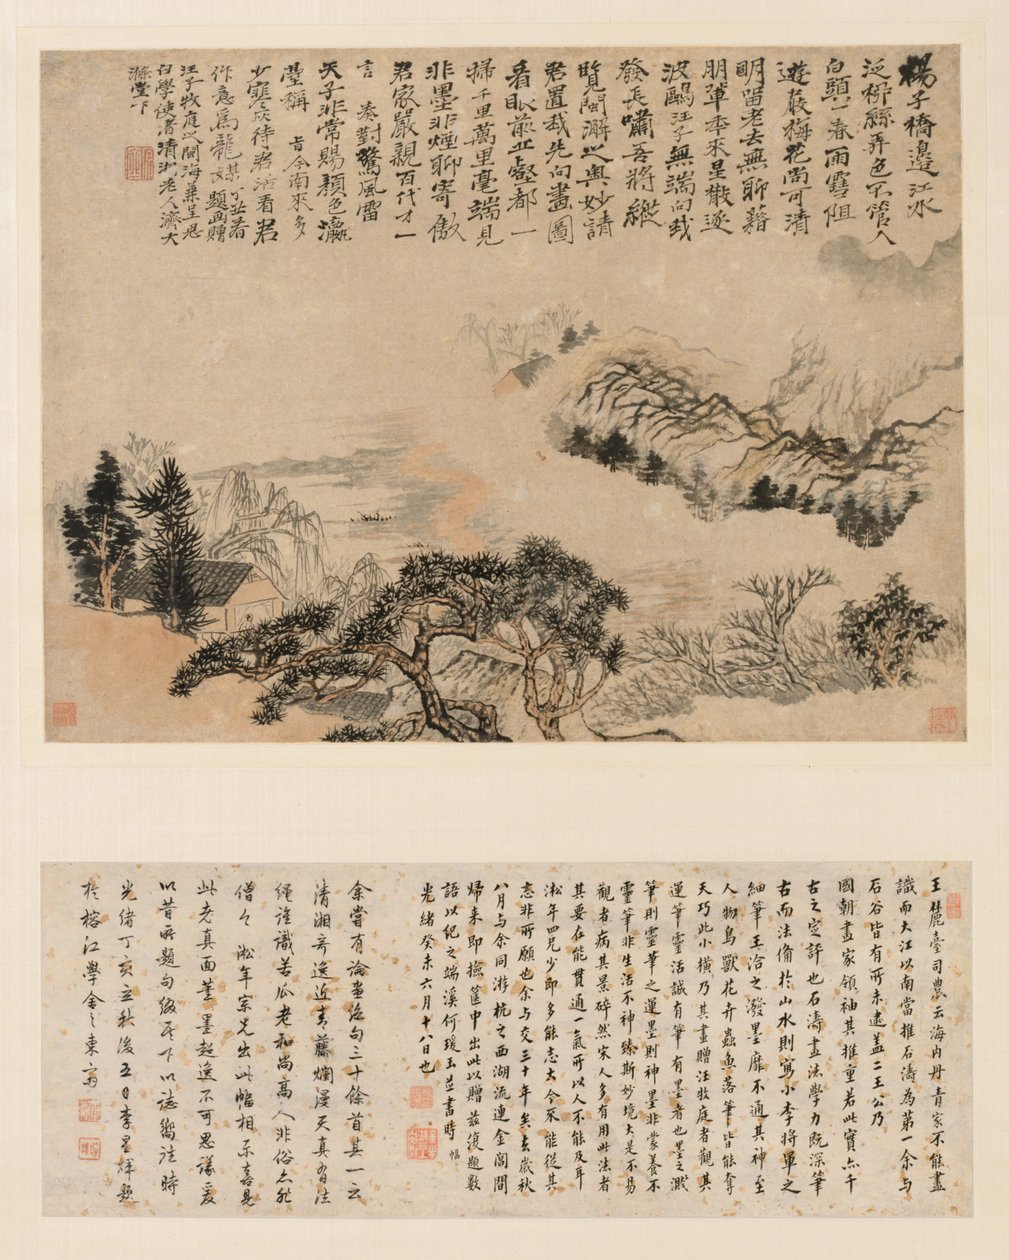 楊子橋邊江水
泛柳絲弄色不管人
白頭一春雨雪阻
遊展梅花尚可清
明留老去無聊藉
朋輩本來星散逐
波鷗汪子無端向我
發長嘯吾將縱
覽閩澥之奥妙請
君置我先向畫圖
看眼前丘壑都一
掃千里萬里毫端見
非墨非煙聊寄傲
君家嚴親百代才一
言 奏對驚風雷
天子非常賜顏色瀛
瀛稱 昔今南來多
少寒 待君 看君
作意為龍媒丁丑春 題畫贈
汪子牧庭之閩海兼呈思
白學使者清湘老人濟大
滌堂下
王麓臺司農云海内丹青家不能盡
識而大江以南當推石濤為第一余與
石谷皆有所未逮蓋二王公乃
國朝畫家領袖其推重若此實六千
古之定評也石濤畫法學力既深筆
古而法備於山水則寫小李將軍之
細筆王洽之潑墨靡不通其神至
人物鳥獸花卉蟲魚落筆皆能奪
天巧此小橫乃其畫贈汪牧庭者觀其
運筆靈活誠有筆有墨者也墨之濺
筆則靈筆之運墨則神墨非蒙養不
靈筆非生活不神臻斯妙境大是不易
觀者病其景碎然宋人多有用此法者
其要在能貫通一氣所以人不能及耳
淞年四兄少即多能志大今不能從其
志非所願也余與交三十年矣去歲秋
八月與余同游杭之西湖流連金閶間
歸來即撿篋中出此以贈茲復題數
語以紀之端溪何瑗玉並書時幅
光緒癸未六月十八日也
余嘗有論畫絶句三十餘首其一云
清湘奇逸近青藤爛漫天真有法
繩誰識苦瓜老和尚高人非俗亦非
僧々 淞年宗兄出此幅相示喜見
此老真面筆墨超逸不可思議爰
以昔所題句綴於下以誌嚮往時
光緒丁亥立秋後五日李星輝題
於榕江學舍之東齋